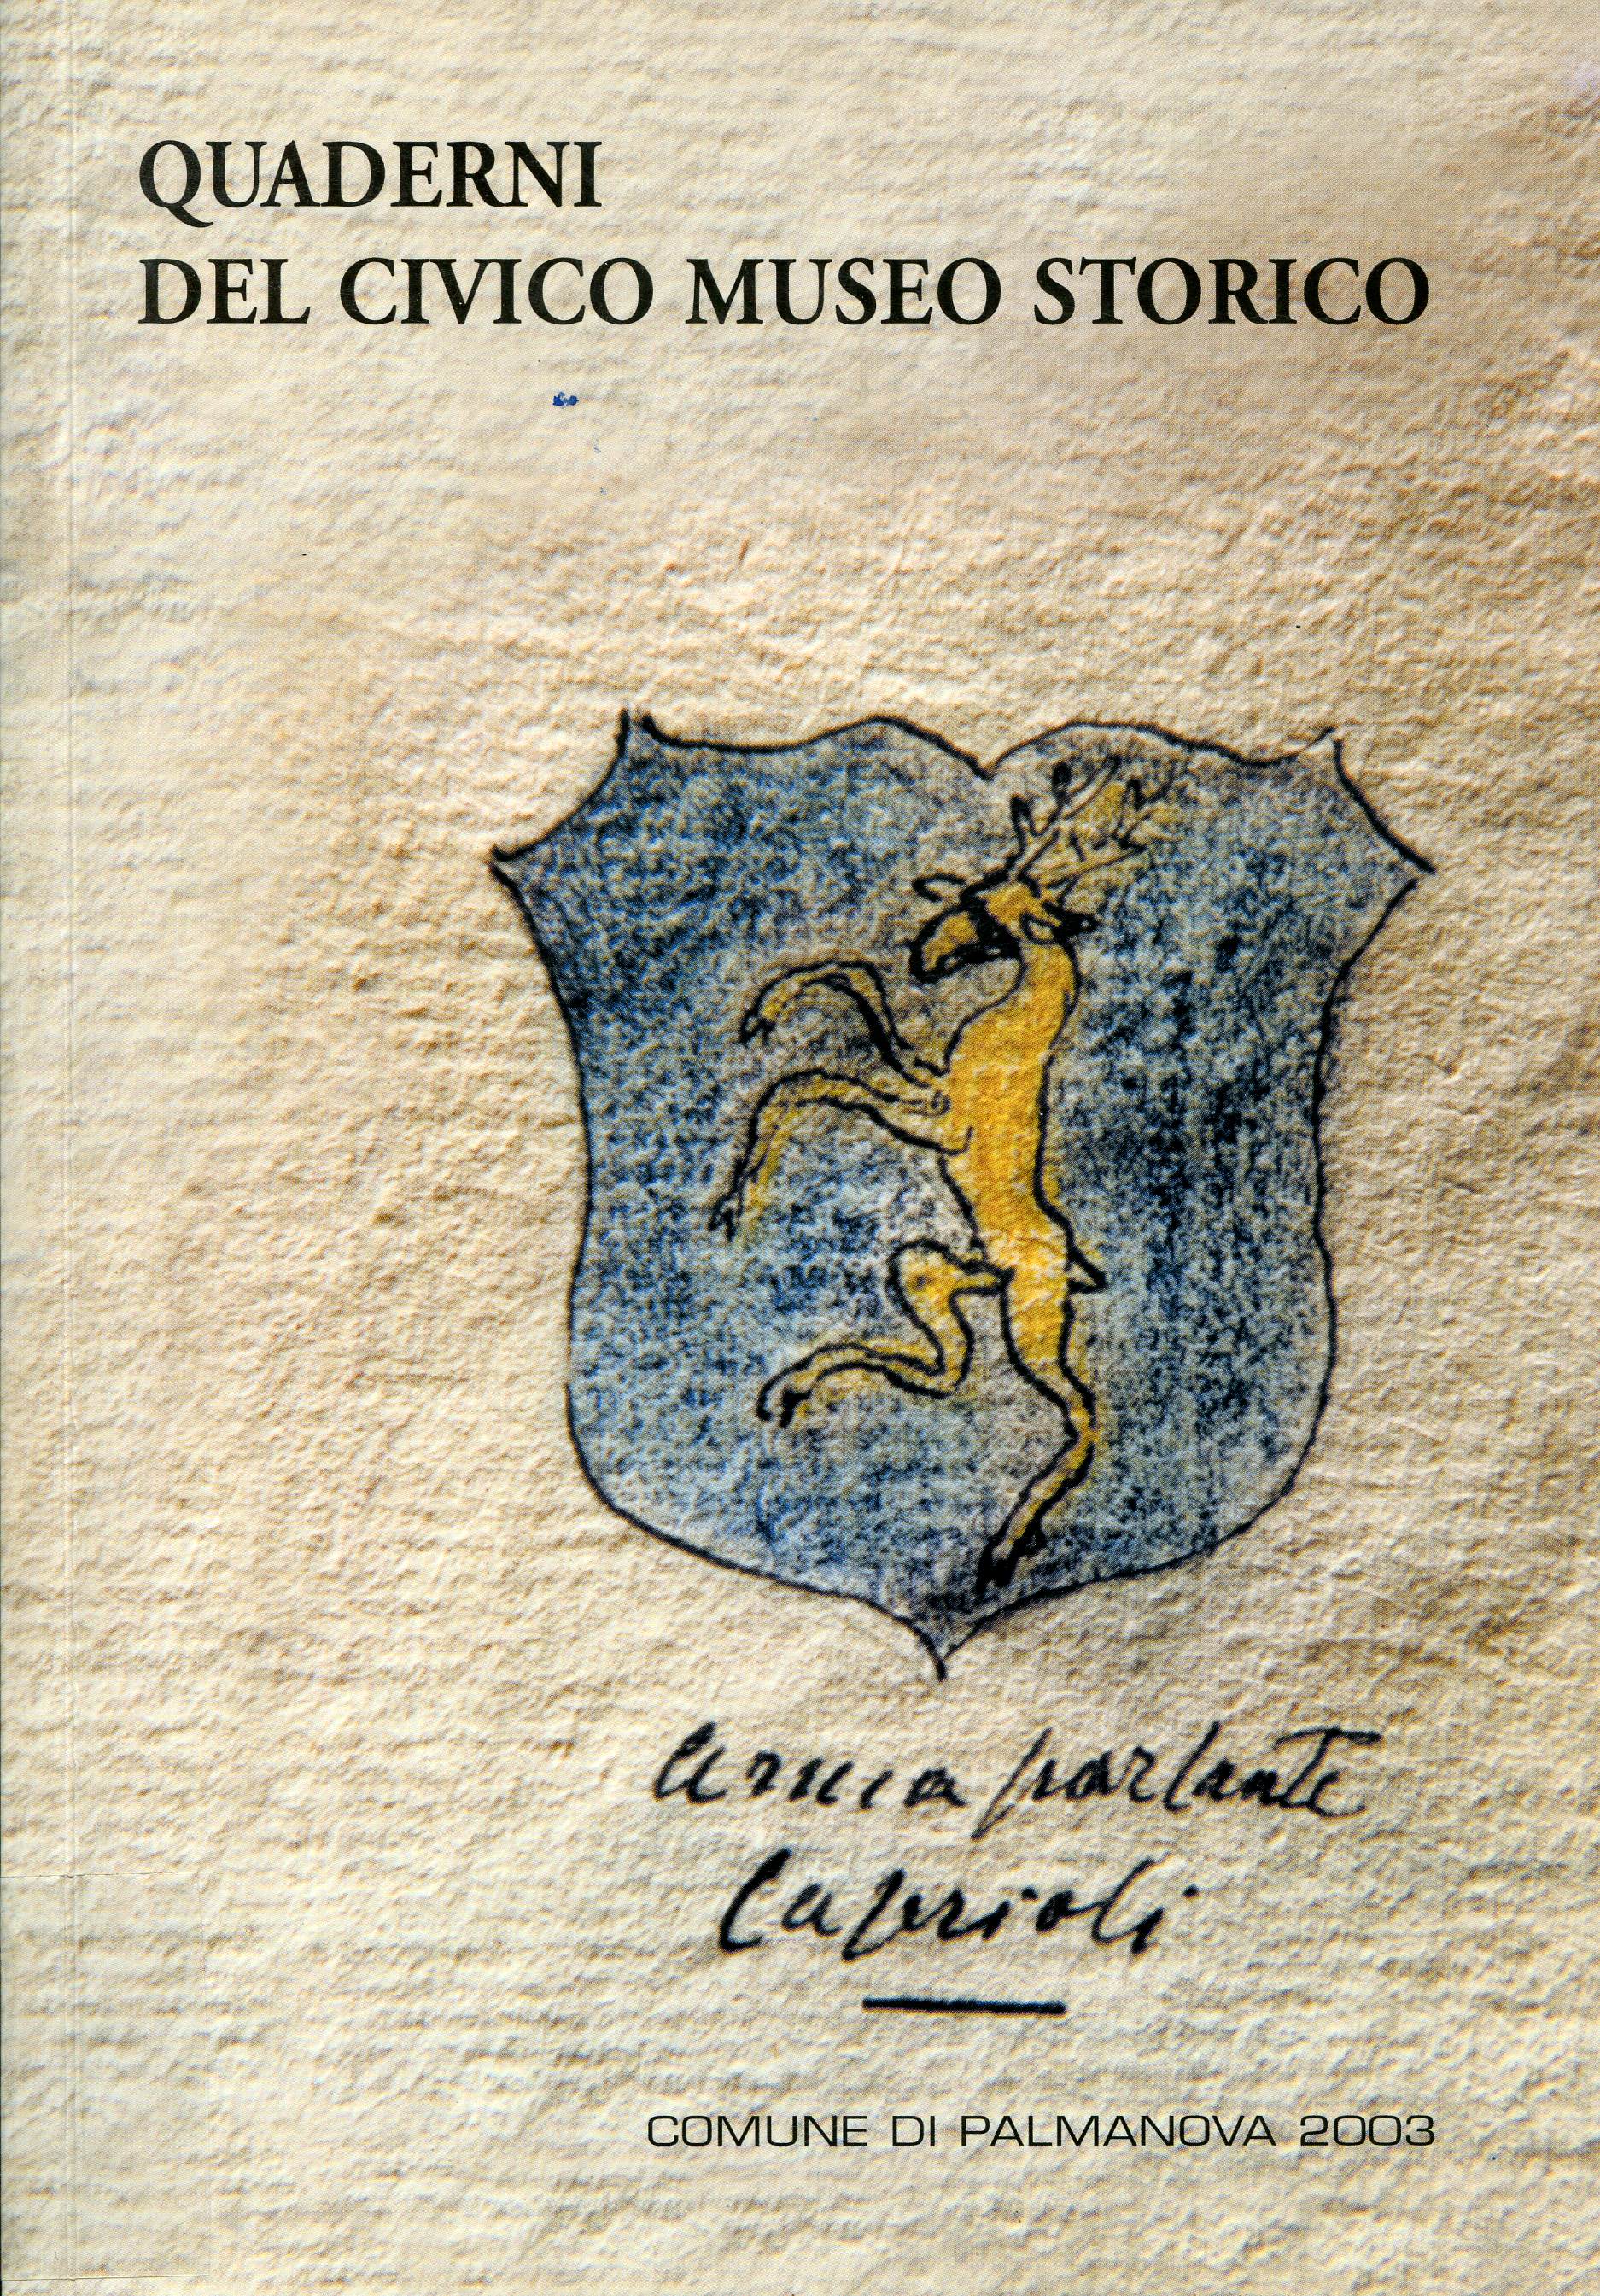 QUADERNI
DEL CIVICO MUSEO STORICO
Arma parlante
Caprioli
COMUNE DI PALMANOVA 2003